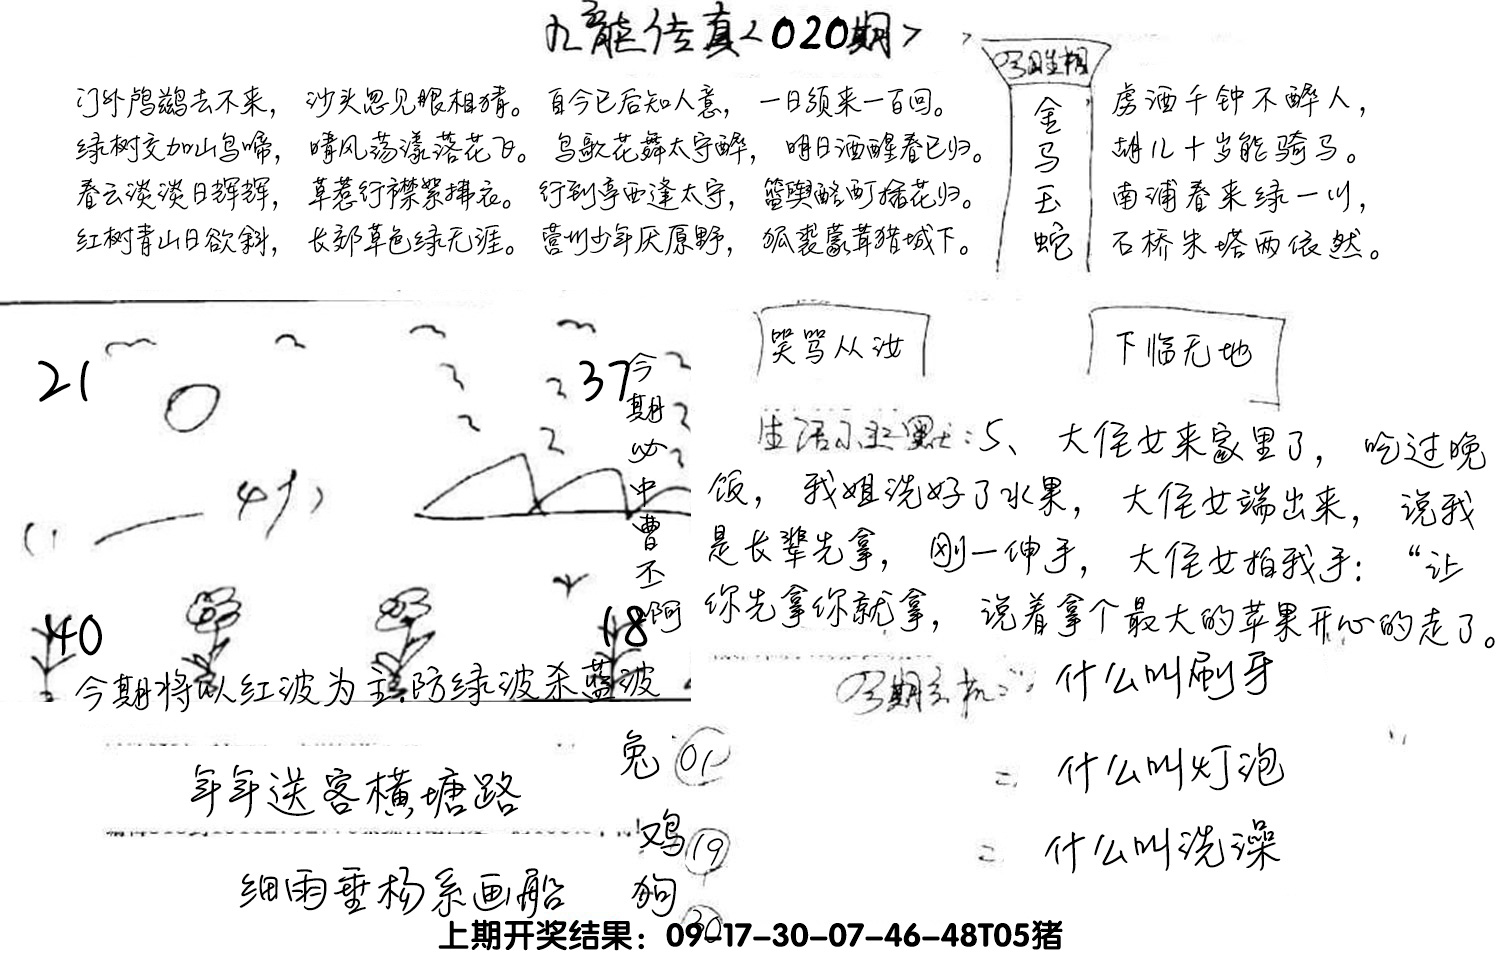 九龍传真<020期>
门外鸬鹚去不来，沙头忽见眼相猜。自今已后知人意，一日须来一百回。
绿树交加山鸟啼，晴风荡漾落花飞。鸟歌花舞太守醉，明日酒醒春已归。
春云淡淡日辉辉，草惹行襟絮拂衣。行到亭西逢太守，篮舆酩酊插花归。
红树青山日欲斜，长郊草色绿无涯。营州少年厌原野，狐裘蒙茸猎城下。
今期生相
金
马
玉
蛇
虏酒千钟不醉人，
胡儿十岁能骑马。
南浦春来绿一川，
石桥朱塔两依然。
21
37
40
18
今期必中曹丕啊
今期将以红波为主防绿波杀蓝波
笑骂从汝
下临无地
生活小幽默：5、大侄女来家里了，吃过晚
饭，我姐洗好了水果，大侄女端出来，说我
是长辈先拿，刚一伸手，大侄女拍我手：“让
你先拿你就拿，说着拿个最大的苹果开心的走了。
今期玄机：什么叫刷牙
= 什么叫灯泡
= 什么叫洗澡
年年送客横塘路
细雨垂杨系画船
兔 01
鸡 19
狗 30
上期开奖结果：09-17-30-07-46-48T05猪